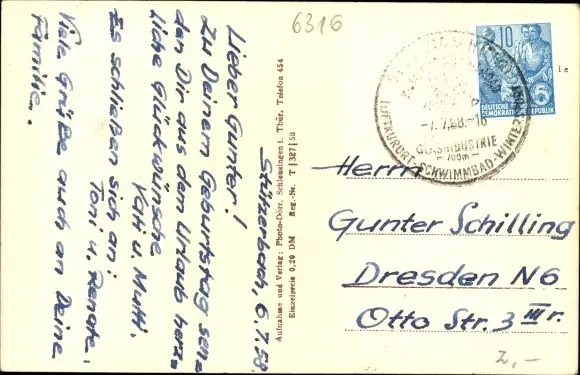 6316
Stützerbach, 6.7.58
Lieber Gunter!
Zu Deinem Geburtstag sen=
den Dir aus dem Urlaub herz=
liche Glückwünsche
Vati u. Mutti.
Es schließen sich an:
Toni u. Renate.
Viele Grüße auch an Deine
Familie.
Aufnahme und Verlag: Photo-Dörr, Schleusingen i. Thür. Telefon 454
Einzelpreis 0,20 DM Reg.-Nr. T | 327 | 58
10
DEUTSCHE
DEMOKRATISCHE REPUBLIK
-7.7.58.-16
GLASINDUSTRIE
- 700m -
LUFTKURORT-SCHWIMMBAD-WINTER
Herrn
Gunter Schilling
Dresden N6
Otto Str. 3 III r.
2,-